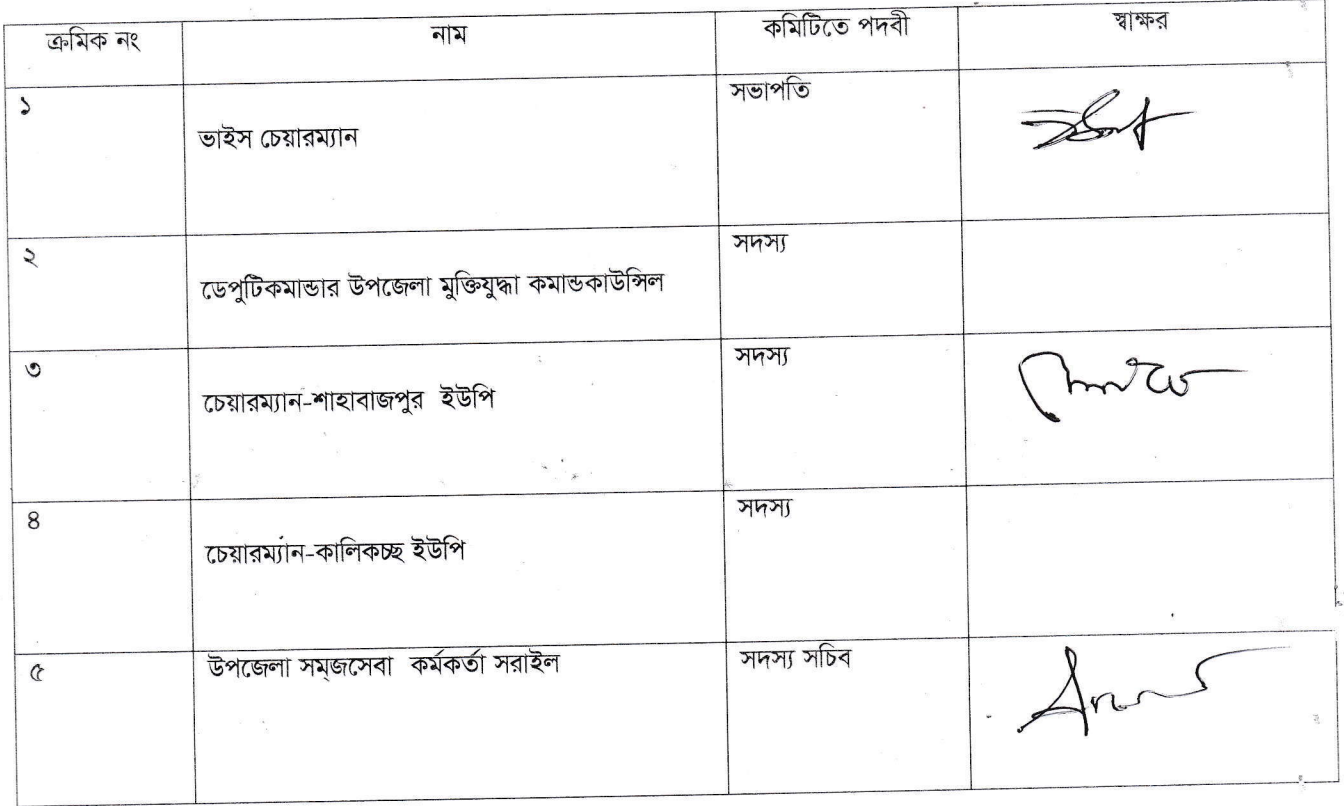 ক্রমিক নং নাম কমিটিতে পদবী স্বাক্ষর
১ ভাইস চেয়ারম্যান সভাপতি
২ ডেপুটিকমান্ডার উপজেলা মুক্তিযুদ্ধা কমান্ডকাউন্সিল সদস্য
৩ চেয়ারম্যান-শাহাবাজপুর ইউপি সদস্য
৪ চেয়ারম্যান-কালিকচ্ছ ইউপি সদস্য
৫ উপজেলা সমজসেবা কর্মকর্তা সরাইল সদস্য সচিব